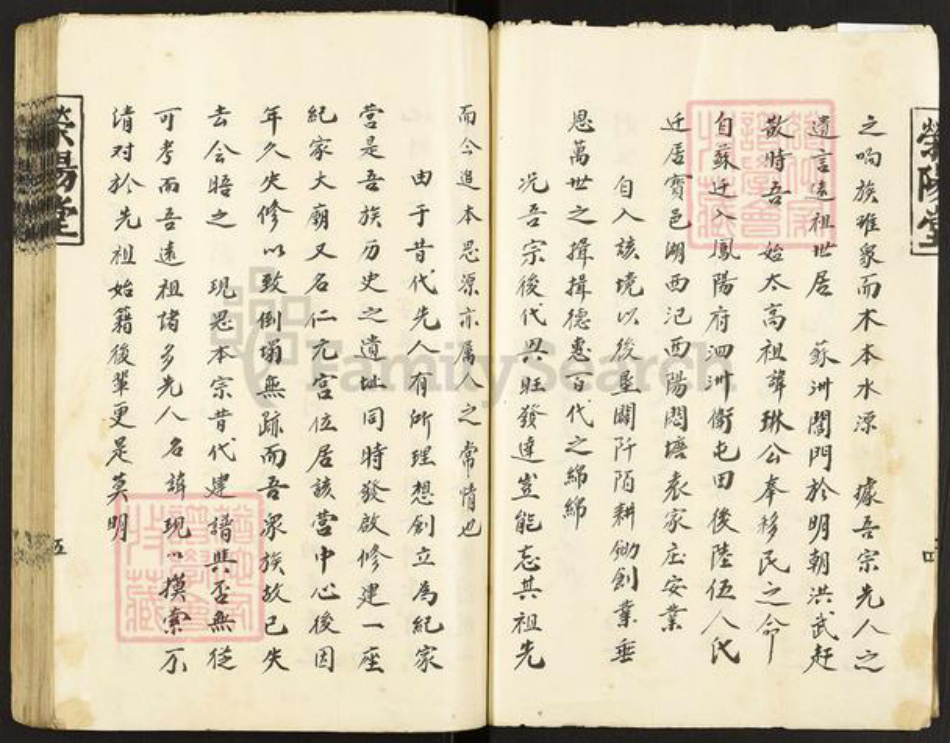 之响族雖衆而木本水源 據吾宗先人之
遺言遠祖世居 蘇洲閶門於明朝洪武赶
散時吾 始太高祖諱琳公奉移民之命
自蘇迁入鳳陽府泗洲衛屯田後陸伍人氏
迁居寶邑湖西氾西陽閻塘袁家庄安業
自入該境以後墾闢阡陌耕做創業垂
恩萬世之揖揖德惠百代之綿綿
况吾宗後代兴旺發達豈能忘其祖先
四
榮陽堂
而今追本思源亦属人之常情也
由于昔代先人有所理想創立為紀家
营是吾族历史之遺址同時發啟修建一座
紀家大廟又名仁元宫位居該营中心後因
年久失修以致倒塌無跡而吾衆族故已失
去会晤之 現思本宗昔代建譜與否無從
可考而吾遠祖诸多先人名諱現以摸索不
清对於先祖始籍後輩更是莫明
五
榮陽堂
FamilySearch